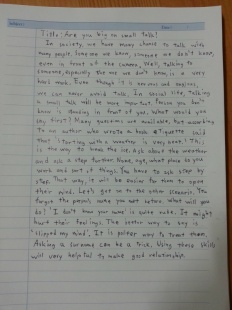 Title: Are you big on small talk?
In society, we have many chance to talk with
many people. Someone we know, someone we don't know,
even in front of the camera. Well, talking to
someone, especially the one we don't know, is a very
hard work. Even though it is nervous and anxious,
we can never avoid talk. In social life, talking
a small talk will be more important. Person you don't
know is standing in front of you. What would you
say first? Many questions are available, but according
to an author who wrote a book etiquette said
that starting with a weather is very best. This
is the way to break the ice. Ask about the weather
and ask a step further. Name, age, what place do you
work and sort of things. You have to ask step by
step. That way, it will be easier for them to open
their mind. Let's get on to the other scenario. You
forgot the people's name you met before. What will you
do? 'I don't know your name' is quite rude. It might
hurt their feelings. The better way to say is
'slipped my mind'. It is politer way to treat them.
Asking a surname can be a trick. Using these skills
will very helpful to make good relationship.